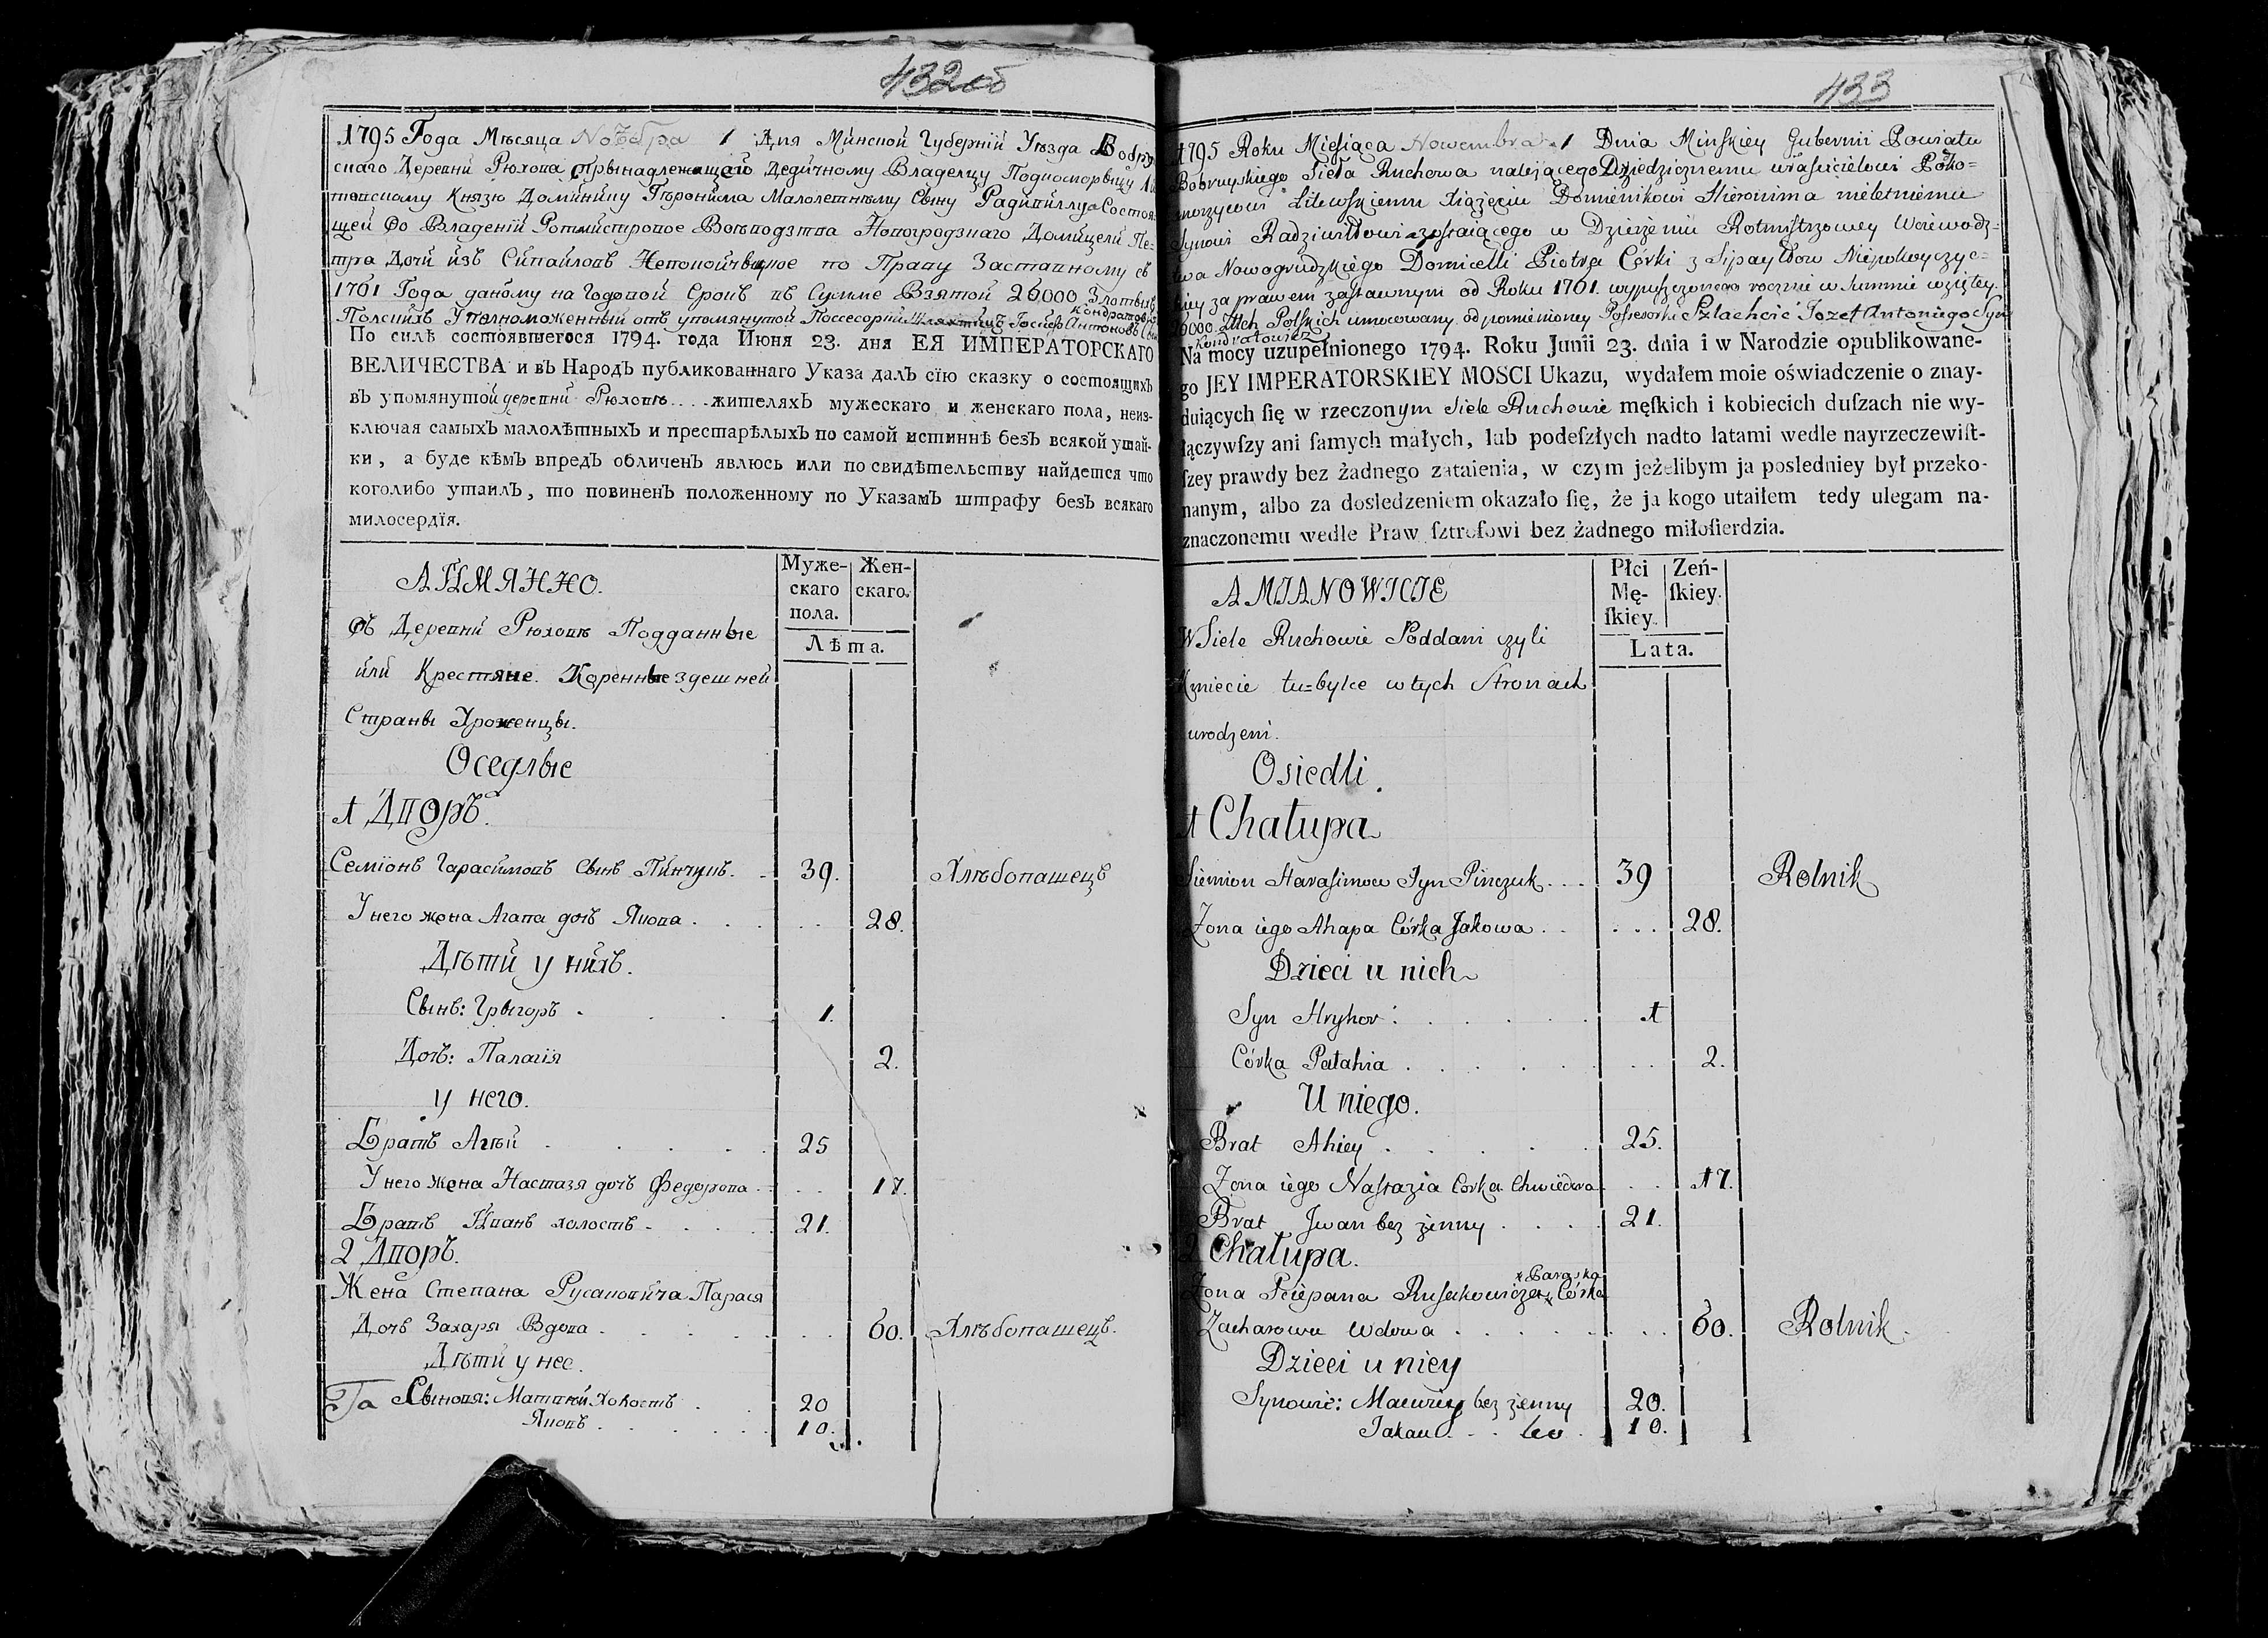 432об
1795 Года Мѣсяца Ноѣбра 1 Дня Минской Губернїй Уѣзда Бобруй
скаго Деревни Рюхова прынадлежащаго Дедичному Владелцу Подкоморыцу Ли
товскому Князю Доминику Геронима Малолетнему Сыну Радивиллу а Состоя=
щей во Владенїй Ротмистровое Воеводзтва Новогродзкаго Домицели Пе=
тра Дочи изъ Сипайловъ Непокойчицкое по Праву Заставному съ
1761 Года даному на Годовой Срокъ въ Сумме Взятой 26000 Злотыхъ
Полскихъ Уполноможенный отъ упомянутой Поссесорки Шляхтичъ Іосифъ Антоновъ Сынъ
Кондратовичъ
По силѣ состоявшегося 1794. года Июня 23. дня ЕЯ ИМПЕРАТОРСКАГО
ВЕЛИЧЕСТВА и въ Народъ публикованнаго Указа далъ сїю сказку о состоящихъ
въ упомянутой деревни Рюхове .... жителяхъ мужескаго и женскаго пола, неиз-
ключая самыхъ малолѣтныхъ и престарѣлыхъ по самой истиннѣ безъ всякой утай-
ки, а буде кѣмъ впредъ обличенъ явлюсь или по свидѣтельству найдется что
коголибо утаилъ, то повиненъ положенному по Указамъ штрафу безъ всякаго
милосердїя.
АИМЯННО.
Муже-
скаго
пола.
Жен-
скаго.
Лѣта.
Въ Деревни Рюхове Подданные
или Крестяне Коренные здешней
Страны Уроженцы.
Оседлые
1 Дворъ.
Семїонъ Гарасимовъ Сынъ Пинчукъ. 39. Хлѣбопашецъ
У него жена Агапа дочъ Якова . . . 28.
Дѣти у нихъ.
Сынъ: Грыгоръ . 1.
Дочъ: Палагія 2.
у него.
Братъ Агѣй . 25
У него жена Настазя дочъ Федорова . 17.
Братъ Иванъ холостъ . 21.
2 Дворъ.
Жена Степана Русаковича Парася
Дочъ Захаря Вдова . . . 60. Хлѣбопашецъ.
Дѣти у нее.
Сыновя: Матвей Холостъ . 20
Яковъ . . . 10.
433
1795 Roku Miesiąca Nowembra 1 Dnia Minskiey Gubernii Powiatu
Bobruyskiego Sieła Ruchowa należącego Dziedzicznemu właścicielowi Podko=
morzycowi Litewskiemu Xiążęciu Dominikowi Hieronima nieletniemu
Synowi Radziwiłłowi zostaiącego w Dzierżeniu Rotmistrzowey Woiewodz=
twa Nowogrudzkiego Domicelli Piotra Córki z Sipayłłow Niepokoyczyc=
kiey za prawem zastawnym od Roku 1761. wypuszczonego rocznie w Summie wziętey
26000 Złłch Polskich umocowany od pomienioney Possesorki Szlachcic Jozef Antoniego Syn
Kondratowicz
Na mocy uzupełnionego 1794. Roku Junii 23. dnia i w Narodzie opublikowane-
go JEY IMPERATORSKIEY MOSCI Ukazu, wydałem moie oświadczenie o znay-
duiących ſię w rzeczonym Siele Ruchowie męſkich i kobiecich duſzach nie wy-
łączywſzy ani ſamych małych, lub podeſzłych nadto latami wedle nayrzeczewiſt-
ſzey prawdy bez żadnego zataienia, w czym jeżelibym ja posledniey był przeko-
nanym, albo za dosledzeniem okazało ſię, że ja kogo utaiłem tedy ulegam na-
znaczonemu wedle Praw ſztrofowi bez żadnego miłoſierdzia.
A MIANOWICIE
Płci
Mę-
ſkiey.
Zeń-
ſkiey.
Lata.
W Siele Ruchowie Poddani czyli
Kmiecie tu=bylce w tych Stronach
urodzeni.
Osiedli.
1 Chałupa
Siemion Harasimow Syn Pinczuk . . . 39 Rolnik
Zona iego Ahapa Córka Jakowa . . . . . 28.
Dzieci u nich
Syn Hryhor . . . . . 1
Córka Pałahia . . . . . 2.
U niego.
Brat Ahiey . . . . . 25.
Zona iego Nastazia Corka Chwiedora . . 17.
Brat Jwan bez żenny . . . . 21.
2 Chałupa.
Zona Sciepana Rusakowicza x Córka
x Paraska
Zacharowa Wdowa . . . . . . . 60. Rolnik.
Dzieci u niey
Synowie: Maciwiey bez żenny 20.
Jakau . . . 10.